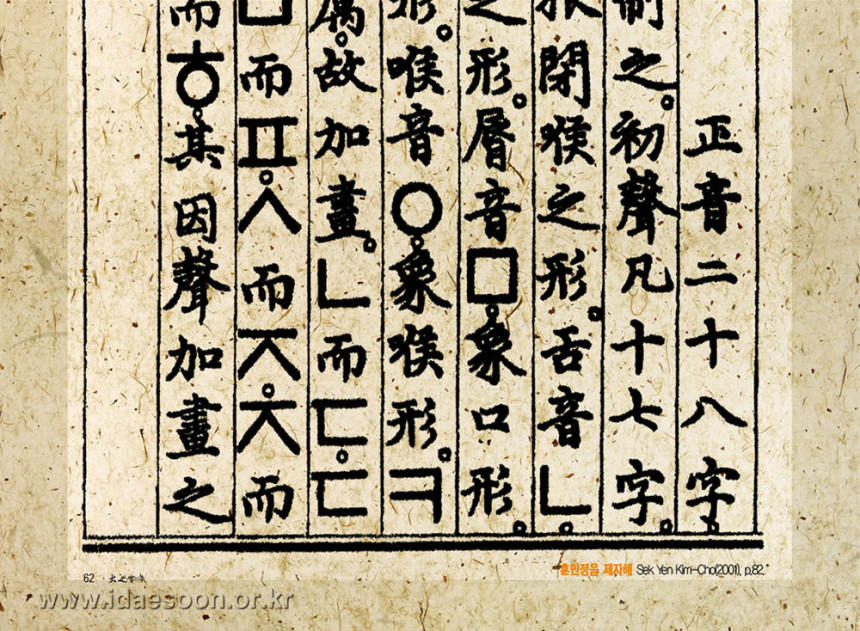 正音二十八字。
制之。初聲凡十七字。
根閉喉之形。舌音ㄴ。
之形。脣音ㅁ。象口形。
形。喉音ㅇ。象喉形。ㅋ
厲。故加畫。ㄴ而ㄷ。ㄷ
ㅂ而ㅍ。ㅅ而ㅈ。ㅈ而
而ㅎ。其因聲加畫之
훈민정음 제자해 Sek Yen Kim-Cho(2001), p.82.
62
www.idaesoon.or.kr